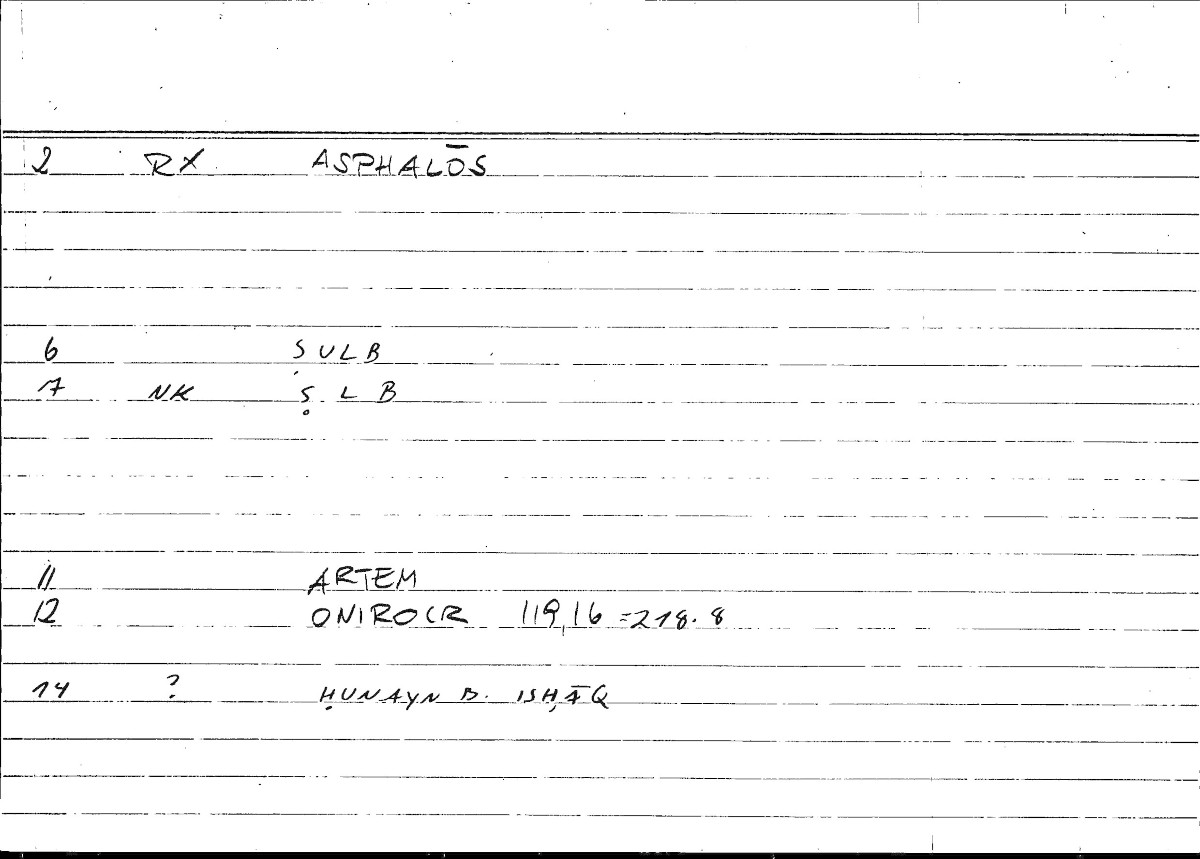 2 RX ASPHALŌS
6 SULB
7 NK ṢLB
11 ARTEM
12 ONIROCR 119,16 = 218.8
14 ? ḤUNAYN B. ISḤĀQ